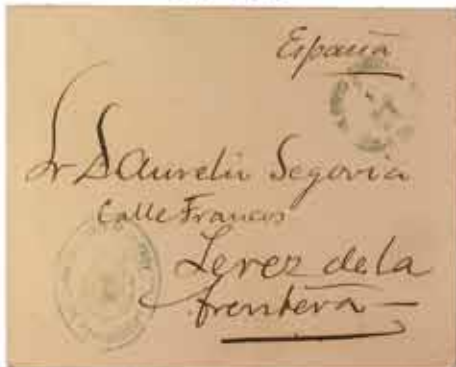 España
Sr D Aurelio Segovia
Calle Francos
Jerez de la
frontera